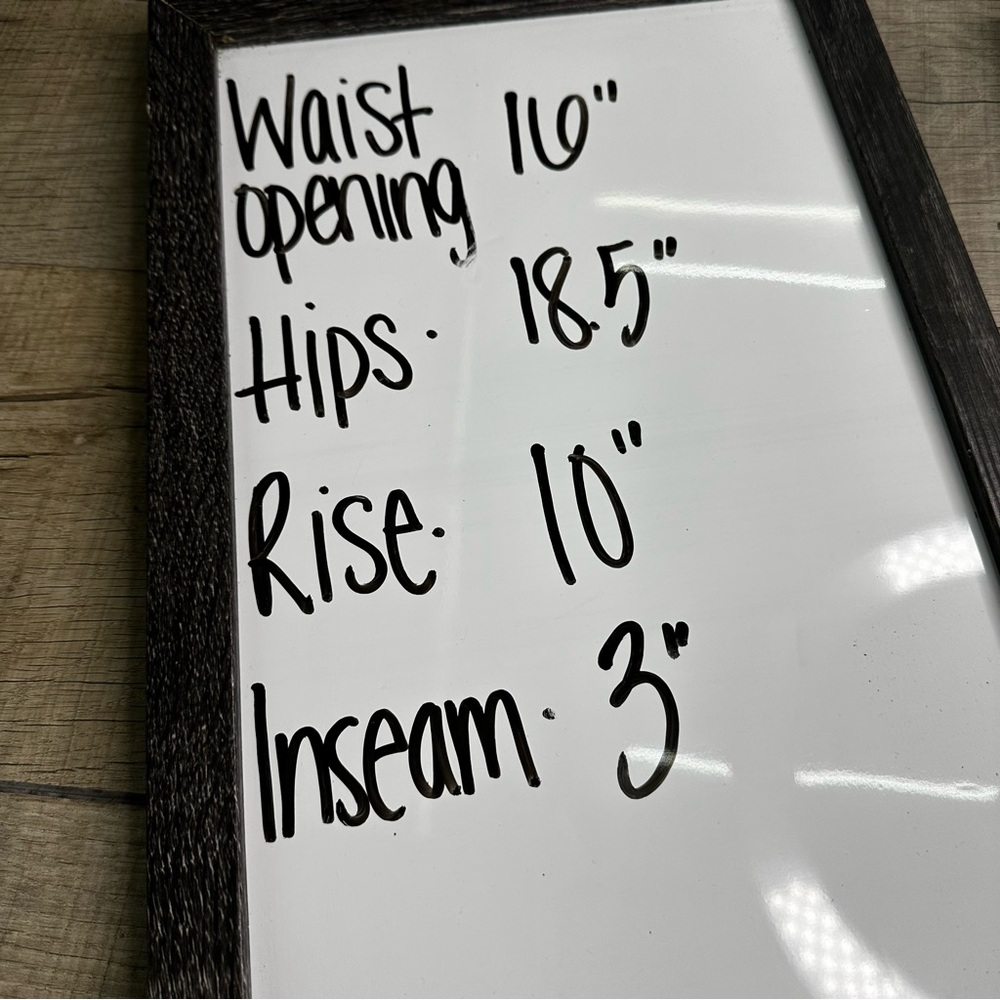 Waist 16"
opening
Hips. 18.5"
Rise. 10"
Inseam. 3"